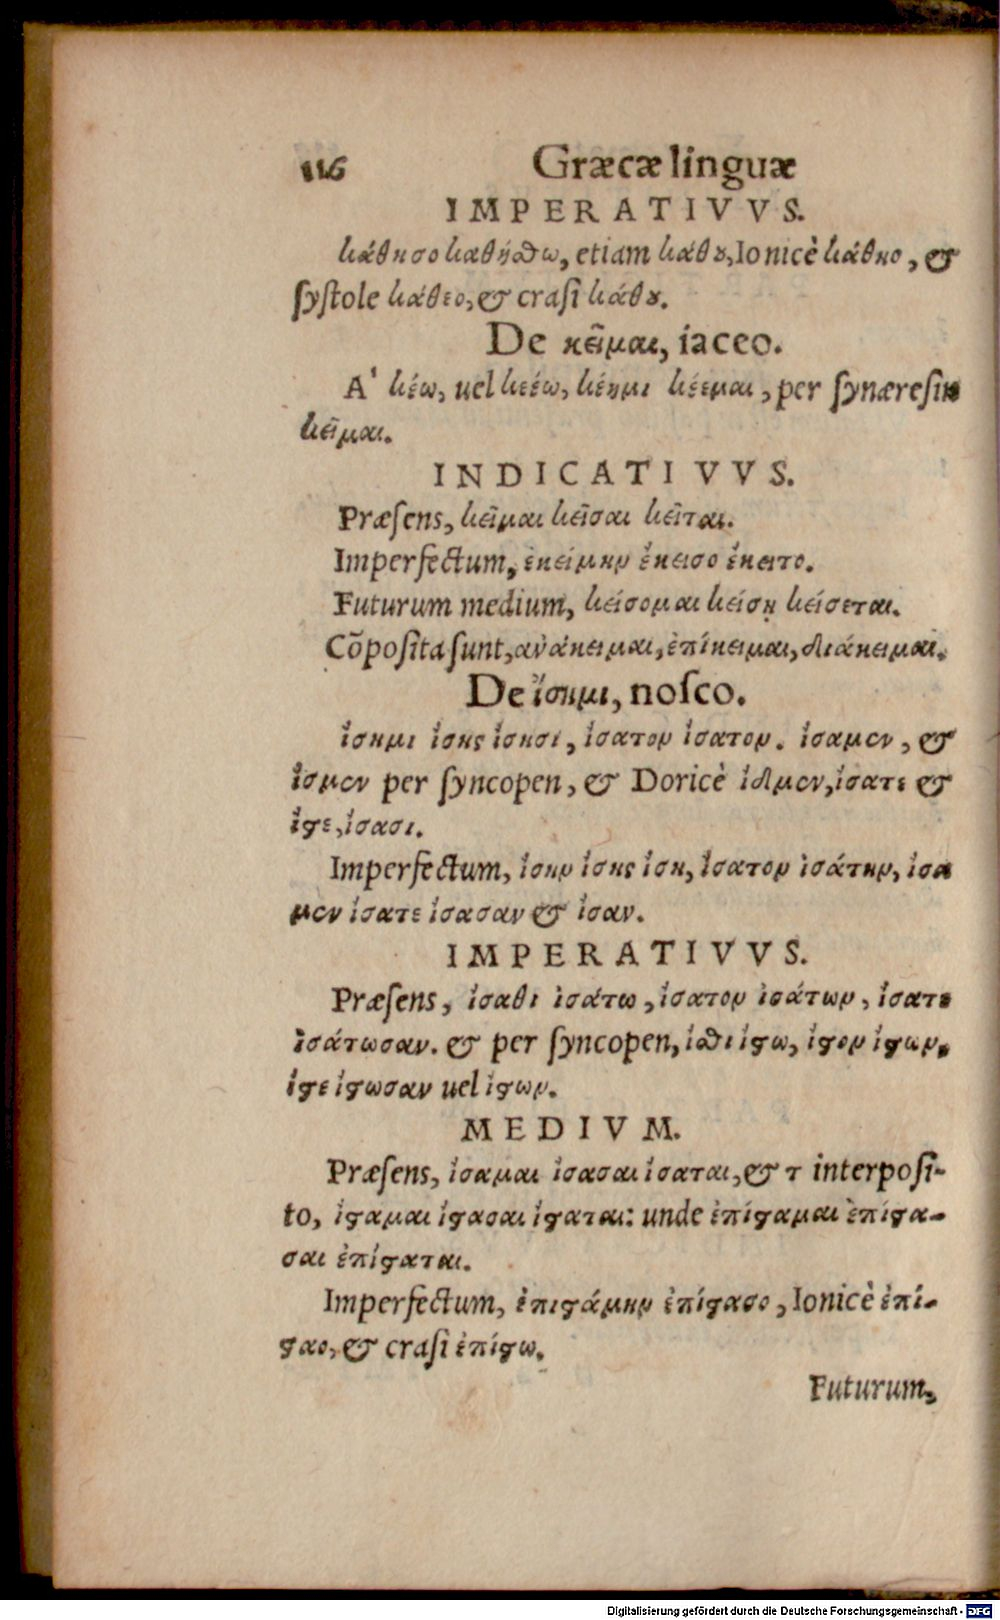 116 Græcæ linguæ
IMPERATIVVS.
κάθησο καθήσθω, etiam κάθου, Ionicè κάθηο, &
ſyſtole κάθεο, & craſi κάθου.
De κεῖμαι, iaceo.
A' κέω, uel κεέω, κέημι κέεμαι, per ſynæreſin
κεῖμαι.
INDICATIVVS.
Præſens, κεῖμαι κεῖσαι κεῖται.
Imperfectum, ἐκείμην ἔκεισο ἔκειτο.
Futurum medium, κείσομαι κείσῃ κείσεται.
Cõpoſita ſunt, ἀνάκειμαι, ἐπίκειμαι, διάκειμαι.
De ἴσημι, noſco.
ἴσημι ἴσης ἴσησι, ἴσατον ἴσατον. ἴσαμεν, &
ἴσμεν per ſyncopen, & Doricè ἴδμεν, ἴσατε &
ἴστε, ἴσασι.
Imperfectum, ἴσην ἴσης ἴση, ἴσατον ἰσάτην, ἴσα
μεν ἴσατε ἴσασαν & ἴσαν.
IMPERATIVVS.
Præſens, ἴσαθι ἰσάτω, ἴσατον ἰσάτων, ἴσατε
ἰσάτωσαν. & per ſyncopen, ἴσθι ἴστω, ἴστον ἴστων,
ἴστε ἴστωσαν uel ἴστων.
MEDIVM.
Præſens, ἴσαμαι ἴσασαι ἴσαται, & τ interpoſi-
to, ἴσταμαι ἴστασαι ἴσταται: unde ἐπίσταμαι ἐπίστα-
σαι ἐπίσταται.
Imperfectum, ἐπιστάμην ἐπίστασο, Ionicè ἐπί-
σταο, & craſi ἐπίστω.
Futurum,
Digitalisierung gefördert durch die Deutsche Forschungsgemeinschaft - DFG